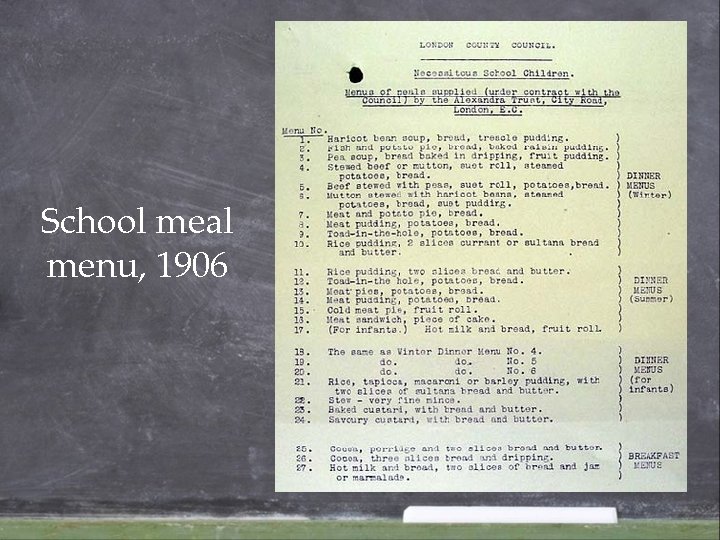 School meal
menu, 1906
LONDON COUNTY COUNCIL.
Necessitous School Children.
Menus of meals supplied (under contract with the
Council) by the Alexandra Trust, City Road,
London, E.C.
Menu No.
1. Haricot bean soup, bread, treacle pudding. )
2. Fish and potato pie, bread, baked raisin pudding. )
3. Pea soup, bread baked in dripping, fruit pudding. )
4. Stewed beef or mutton, suet roll, steamed )
potatoes, bread. ) DINNER
5. Beef stewed with peas, suet roll, potatoes,bread. ) MENUS
6. Mutton stewed with haricot beans, steamed ) (Winter)
potatoes, bread, suet pudding. )
7. Meat and potato pie, bread. )
8. Meat pudding, potatoes, bread. )
9. Toad-in-the-hole, potatoes, bread. )
10. Rice pudding, 2 slices currant or sultana bread )
and butter. )
11. Rice pudding, two slices bread and butter. )
12. Toad-in-the hole, potatoes, bread. ) DINNER
13. Meat pies, potatoes, bread. ) MENUS
14. Meat pudding, potatoes, bread. ) (Summer)
15. Cold meat pie, fruit roll. )
16. Meat sandwich, piece of cake. )
17. (For infants.) Hot milk and bread, fruit roll. )
18. The same as Winter Dinner Menu No. 4. )
19. do. do. No. 5 ) DINNER
20. do. do. No. 6 ) MENUS
21. Rice, tapioca, macaroni or barley pudding, with ) (for
two slices of sultana bread and butter. ) infants)
22. Stew - very fine mince. )
23. Baked custard, with bread and butter. )
24. Savoury custard, with bread and butter. )
25. Cocoa, porridge and two slices bread and butter. )
26. Cocoa, three slices bread and dripping. ) BREAKFAST
27. Hot milk and bread, two slices of bread and jam ) MENUS
or marmalade. )